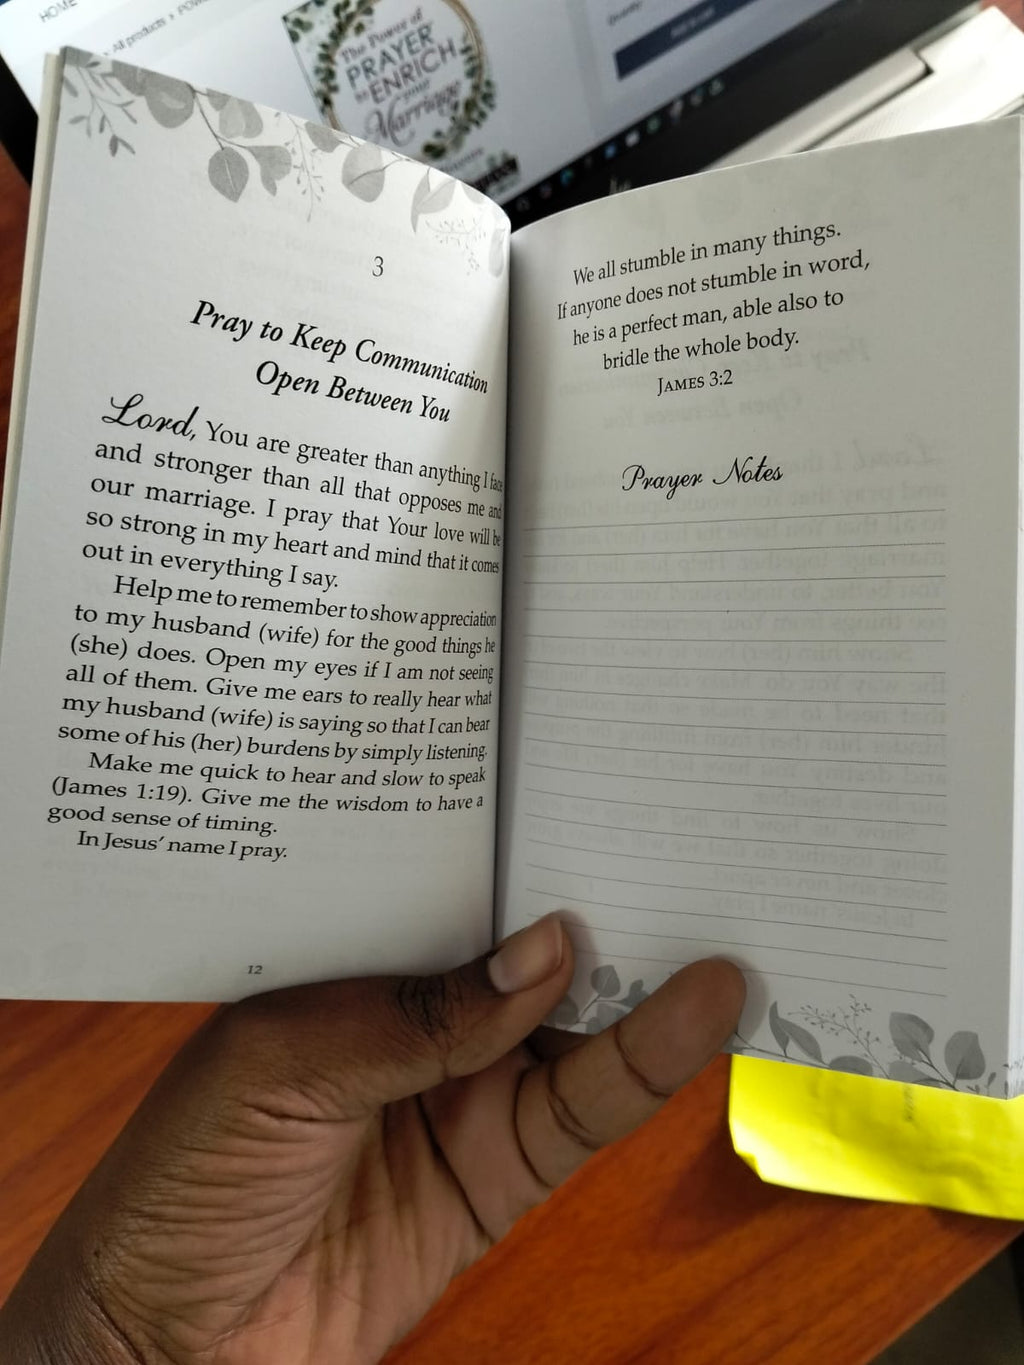 HOME
All products >
The Power of
PRAYER
to ENRICH
your
Marriage
3
Pray to Keep Communication
Open Between You
Lord, You are greater than anything I face
and stronger than all that opposes me and
our marriage. I pray that Your love will be
so strong in my heart and mind that it comes
out in everything I say.
Help me to remember to show appreciation
to my husband (wife) for the good things he
(she) does. Open my eyes if I am not seeing
all of them. Give me ears to really hear what
my husband (wife) is saying so that I can bear
some of his (her) burdens by simply listening.
Make me quick to hear and slow to speak
(James 1:19). Give me the wisdom to have a
good sense of timing.
In Jesus' name I pray.
12
We all stumble in many things.
If anyone does not stumble in word,
he is a perfect man, able also to
bridle the whole body.
JAMES 3:2
Prayer Notes